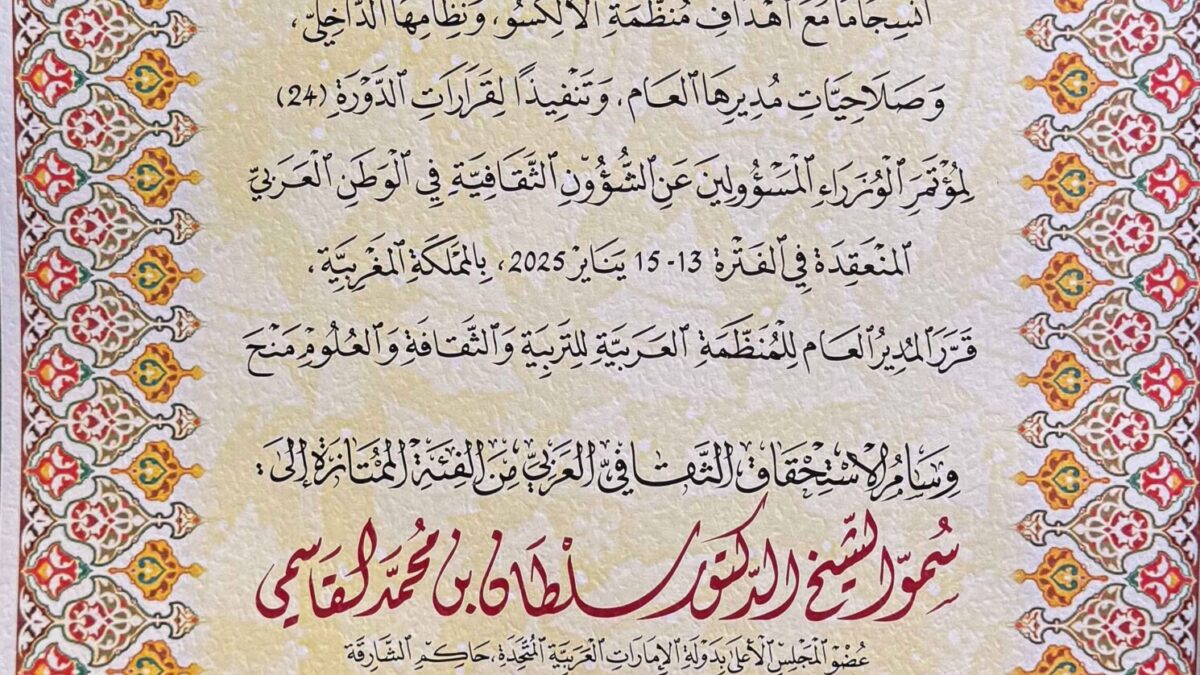 ٱنْسِجَامًا مَعَ أَهْدَافِ مُنَظَّمَةِ ٱلْأَلِكْسُو، وَنِظَامِهَا ٱلدَّاخِلِيِّ،
وَصَلَاحِيَّاتِ مُدِيرِهَا ٱلعَام، وَتَنْفِيذًا لِقَرَارَاتِ ٱلدَّوْرَةِ (24)
لِمُؤْتَمَرِ ٱلْوُزَرَاءِ ٱلْمَسْؤُولِينَ عَنِ ٱلشُّؤُونِ ٱلثَّقَافِيَّةِ فِي ٱلْوَطَنِ ٱلْعَرَبِيِّ
ٱلمُنْعَقِدَةِ فِي ٱلفَتْرَةِ 13-15 يَنَايْر 2025، بِالمَمْلَكَةِ ٱلمَغْرِبِيَّةِ،
قَرَّرَ ٱلمُدِيرُ ٱلعَام لِلْمُنَظَّمَةِ ٱلعَرَبِيَّةِ لِلتَّرْبِيَةِ وَٱلثَّقَافَةِ وَٱلعُلُومِ مَنْحَ
وِسَامُ الِاسْتِحْقَاقِ الثَّقَافِيِّ العَرَبِيِّ مِنَ الفِئَةِ المُمْتَازَةِ إِلَى:
سُمُوّ الشَّيْخ الدّكتور سُلْطَان بن مُحَمَّد القَاسِمِي
عُضْوُ ٱلْمَجْلِسِ ٱلْأَعْلَى بِدَوْلَةِ ٱلْإِمَارَاتِ ٱلْعَرَبِيَّةِ ٱلْمُتَّحِدَةِ، حَاكِمِ ٱلشَّارِقَة